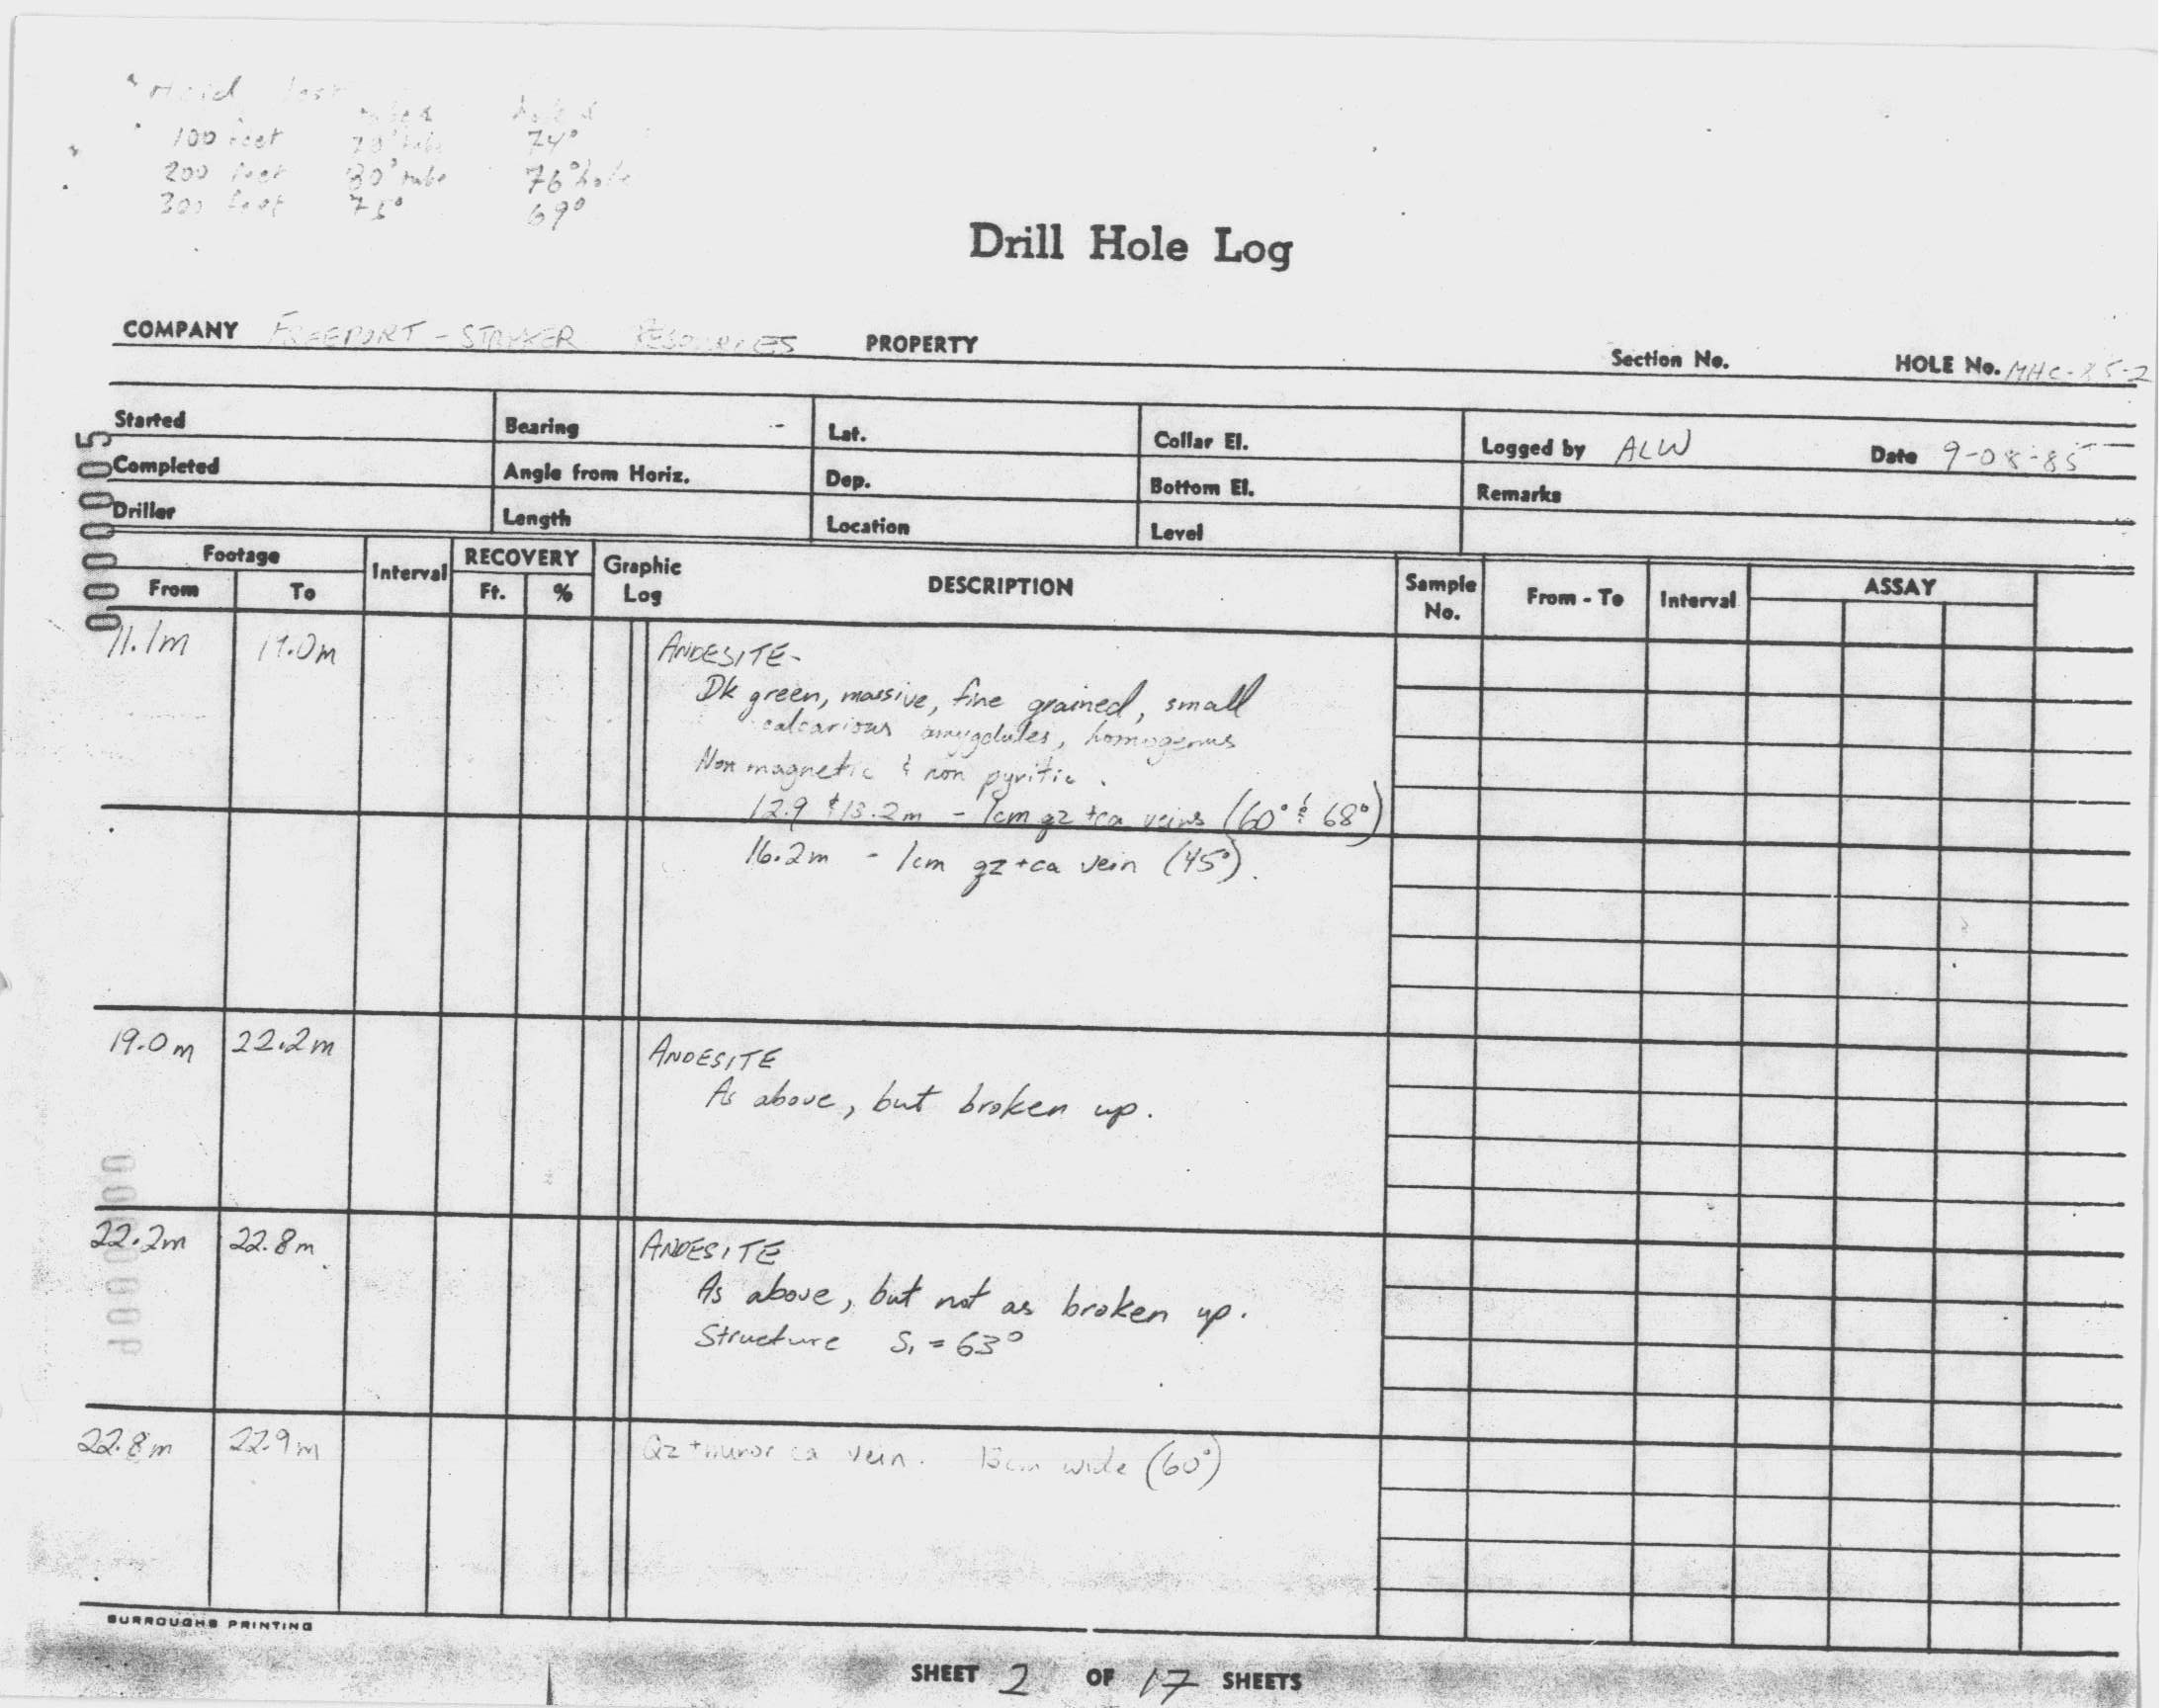 Acid test
100 feet tube 74°
200 feet 80° tube 76° hole
300 feet 75° 69°
Drill Hole Log
COMPANY FREEPORT - STRYKER RESOURCES PROPERTY Section No. HOLE No. MHC-85-2
Started Bearing Lat. Collar El. Logged by ALW Date 9-08-85
Completed Angle from Horiz. Dep. Bottom El. Remarks
Driller Length Location Level
00000005
Footage Interval RECOVERY Graphic Log DESCRIPTION Sample No. From - To Interval ASSAY
From To Ft. %
11.1m 19.0m ANDESITE-
Dk green, massive, fine grained, small
calcarious amygdules, homogenus
Non magnetic & non pyritic.
12.9 & 13.2m - 1cm qz +ca veins (60° & 68°)
16.2m - 1cm qz +ca vein (45°).
19.0m 22.2m ANDESITE
As above, but broken up.
22.2m 22.8m ANDESITE
As above, but not as broken up.
Structure S₁ = 63°
22.8m 22.9m Qz + minor ca vein. wide (60°)
BURROUGHS PRINTING
SHEET 2 OF 17 SHEETS